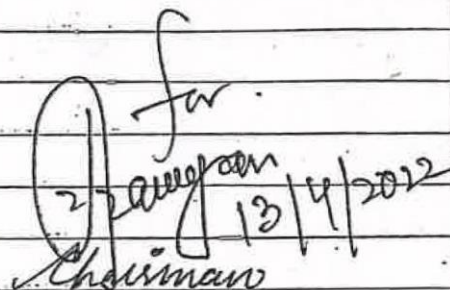 for.
13/4/2022
Chairman